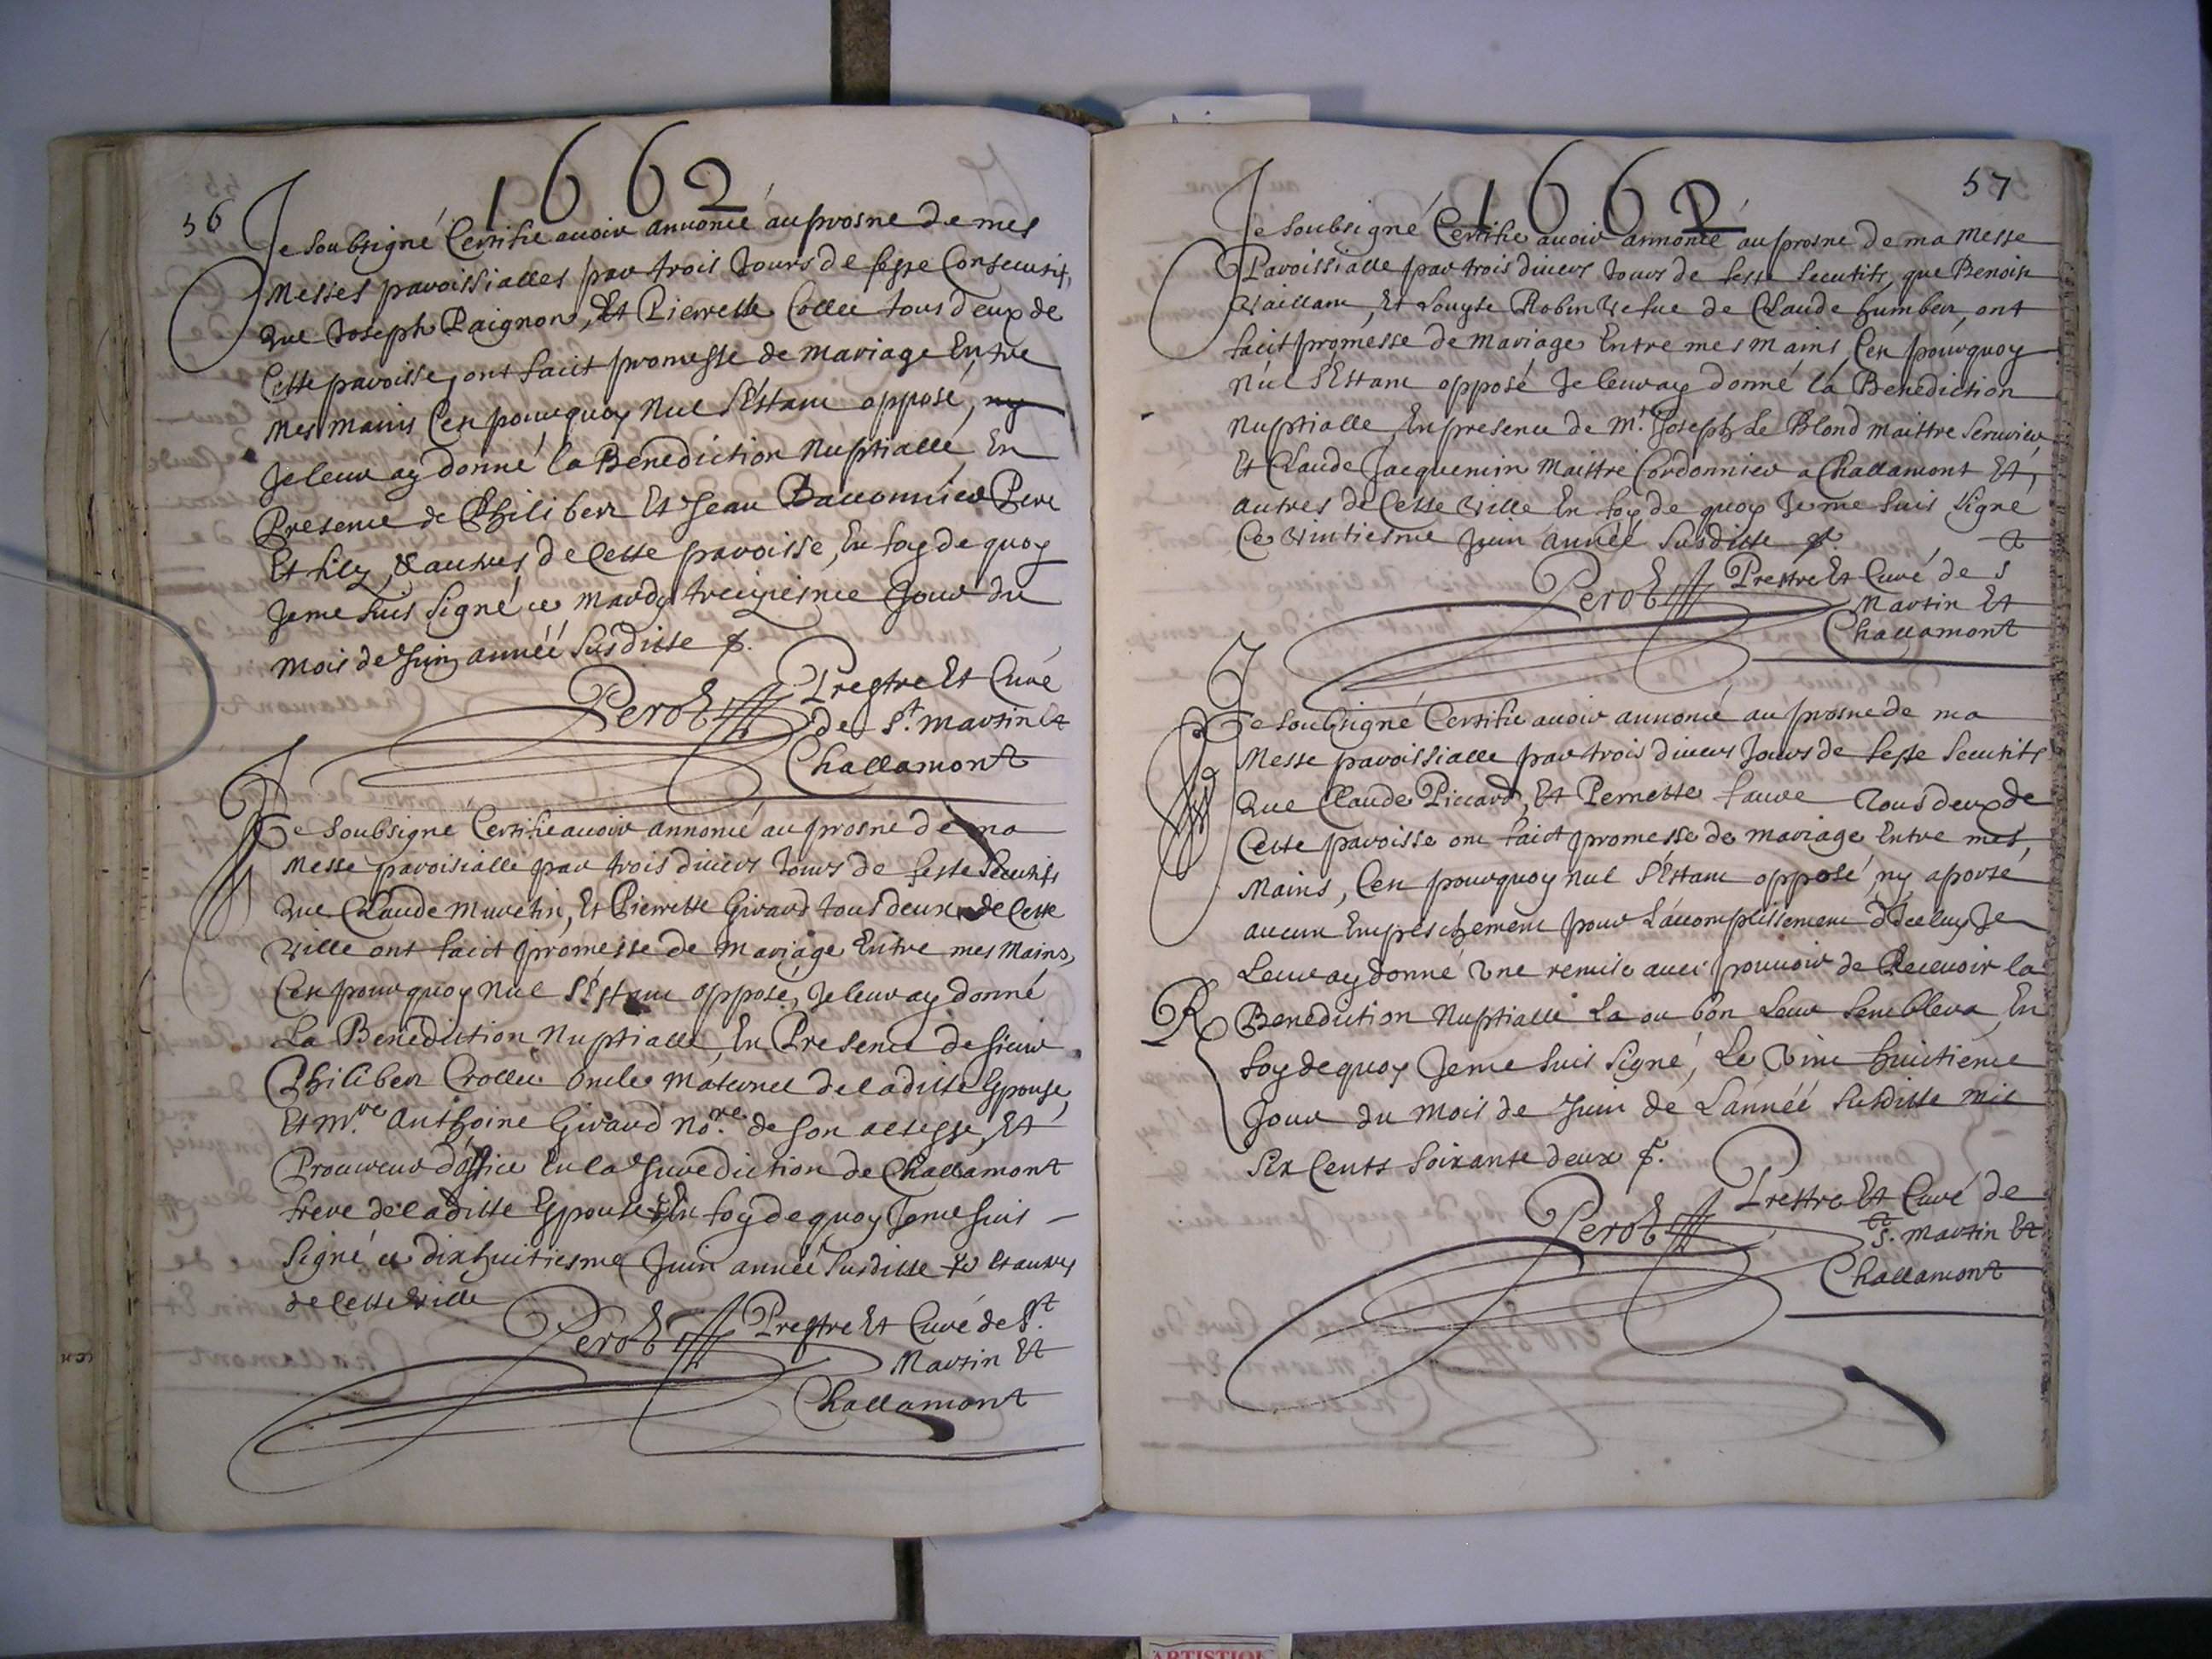 1662
56
Je soubsigné Certifie avoir annoncé au prosne de mes
Messes paroissialles par trois Jours de feste Consecutifs,
que Joseph Paignon, Et Pierrette Collet tous deux de
Cette paroisse, ont faict promesse de mariage Entre
Mes mains Cest pourquoy Nul s'Estant opposé, ny
Je leur ay donné la Benediction Nuptialle, En
Presence de Philibert Et Jean Baccomnier Pere
Et filz, & autres de Cette paroisse, En foy de quoy
Je me suis signé ce mardy treiziesme Jour du
Mois de Juin année Susditte
Perot Prestre Et Curé
de St. Martin Et
Challamont
Je Soubsigné Certifie avoir annoncé au prosne de ma
Messe paroisialle par trois divers Jours de feste Secutifs
que Claude Muretin, Et Pierrette Girard tous deux de Cette
Ville ont faict promesse de Mariage Entre mes Mains,
Cest pourquoy Nul s'Estant opposé, Je leur ay donné
La Benediction Nuptialle, En Presence de sieur
Philibert Crollet oncle maternel de laditte Epouse,
Et M.re Anthoine Girard No.re de son altesse, Et
Procureur d'office En la Juredistion de Challamont
frere de laditte Epouse En foy de quoy Je me suis
Signé ce dixhuitiesme Juin année Susditte Et autres
de Cette Ville
Perot Prestre Et Curé de St.
Martin Et
Challamont
1662
57
Je Soubsigné Certifie avoir annoncé au prosne de ma Messe
Paroissialle par trois divers Jours de feste Secutifs, que Benoist
Vaillant, Et Louyse Robin Vefue de Claude humbert, ont
faict promesse de Mariage Entre mes mains, Cest pourquoy
Nul s'Estant opposé Je leur ay donné la Benediction
Nuptialle, En presence de Mr. Joseph Le Blond Maittre Serrurier
Et Claude Jacquemin Maittre Cordonnier a Challamont Et,
autres de Cette Ville En foy de quoy Je me suis Signé
Ce Vintiesme Juin année Susditte
Perot Prestre Et Curé de St
Martin Et
Challamont
Je Soubsigné Certifie avoir annoncé au prosne de ma
Messe paroissialle par trois divers Jours de feste Secutifs
que Claude Piccard, Et Pernette faure Tous deux de
Cette paroisse ont faict promesse de mariage Entre mes,
Mains, Cest pourquoy Nul s'Estant opposé, ny aporté
aucun Empeschement pour L'accomplissement d'Iceluy Je
Leur ay donné Une remise avec pouvoir de Recevoir la
Benediction Nuptialle La ou bon Leur Semblera, En
foy de quoy Je me suis Signé, Le Vint huitieme
Jour du Mois de Juin de L'année Susditte mil
Six Cents Soixante deux
R
Perot Prestre Et Curé de
St. Martin Et
Challamont
ARTISTIQUE